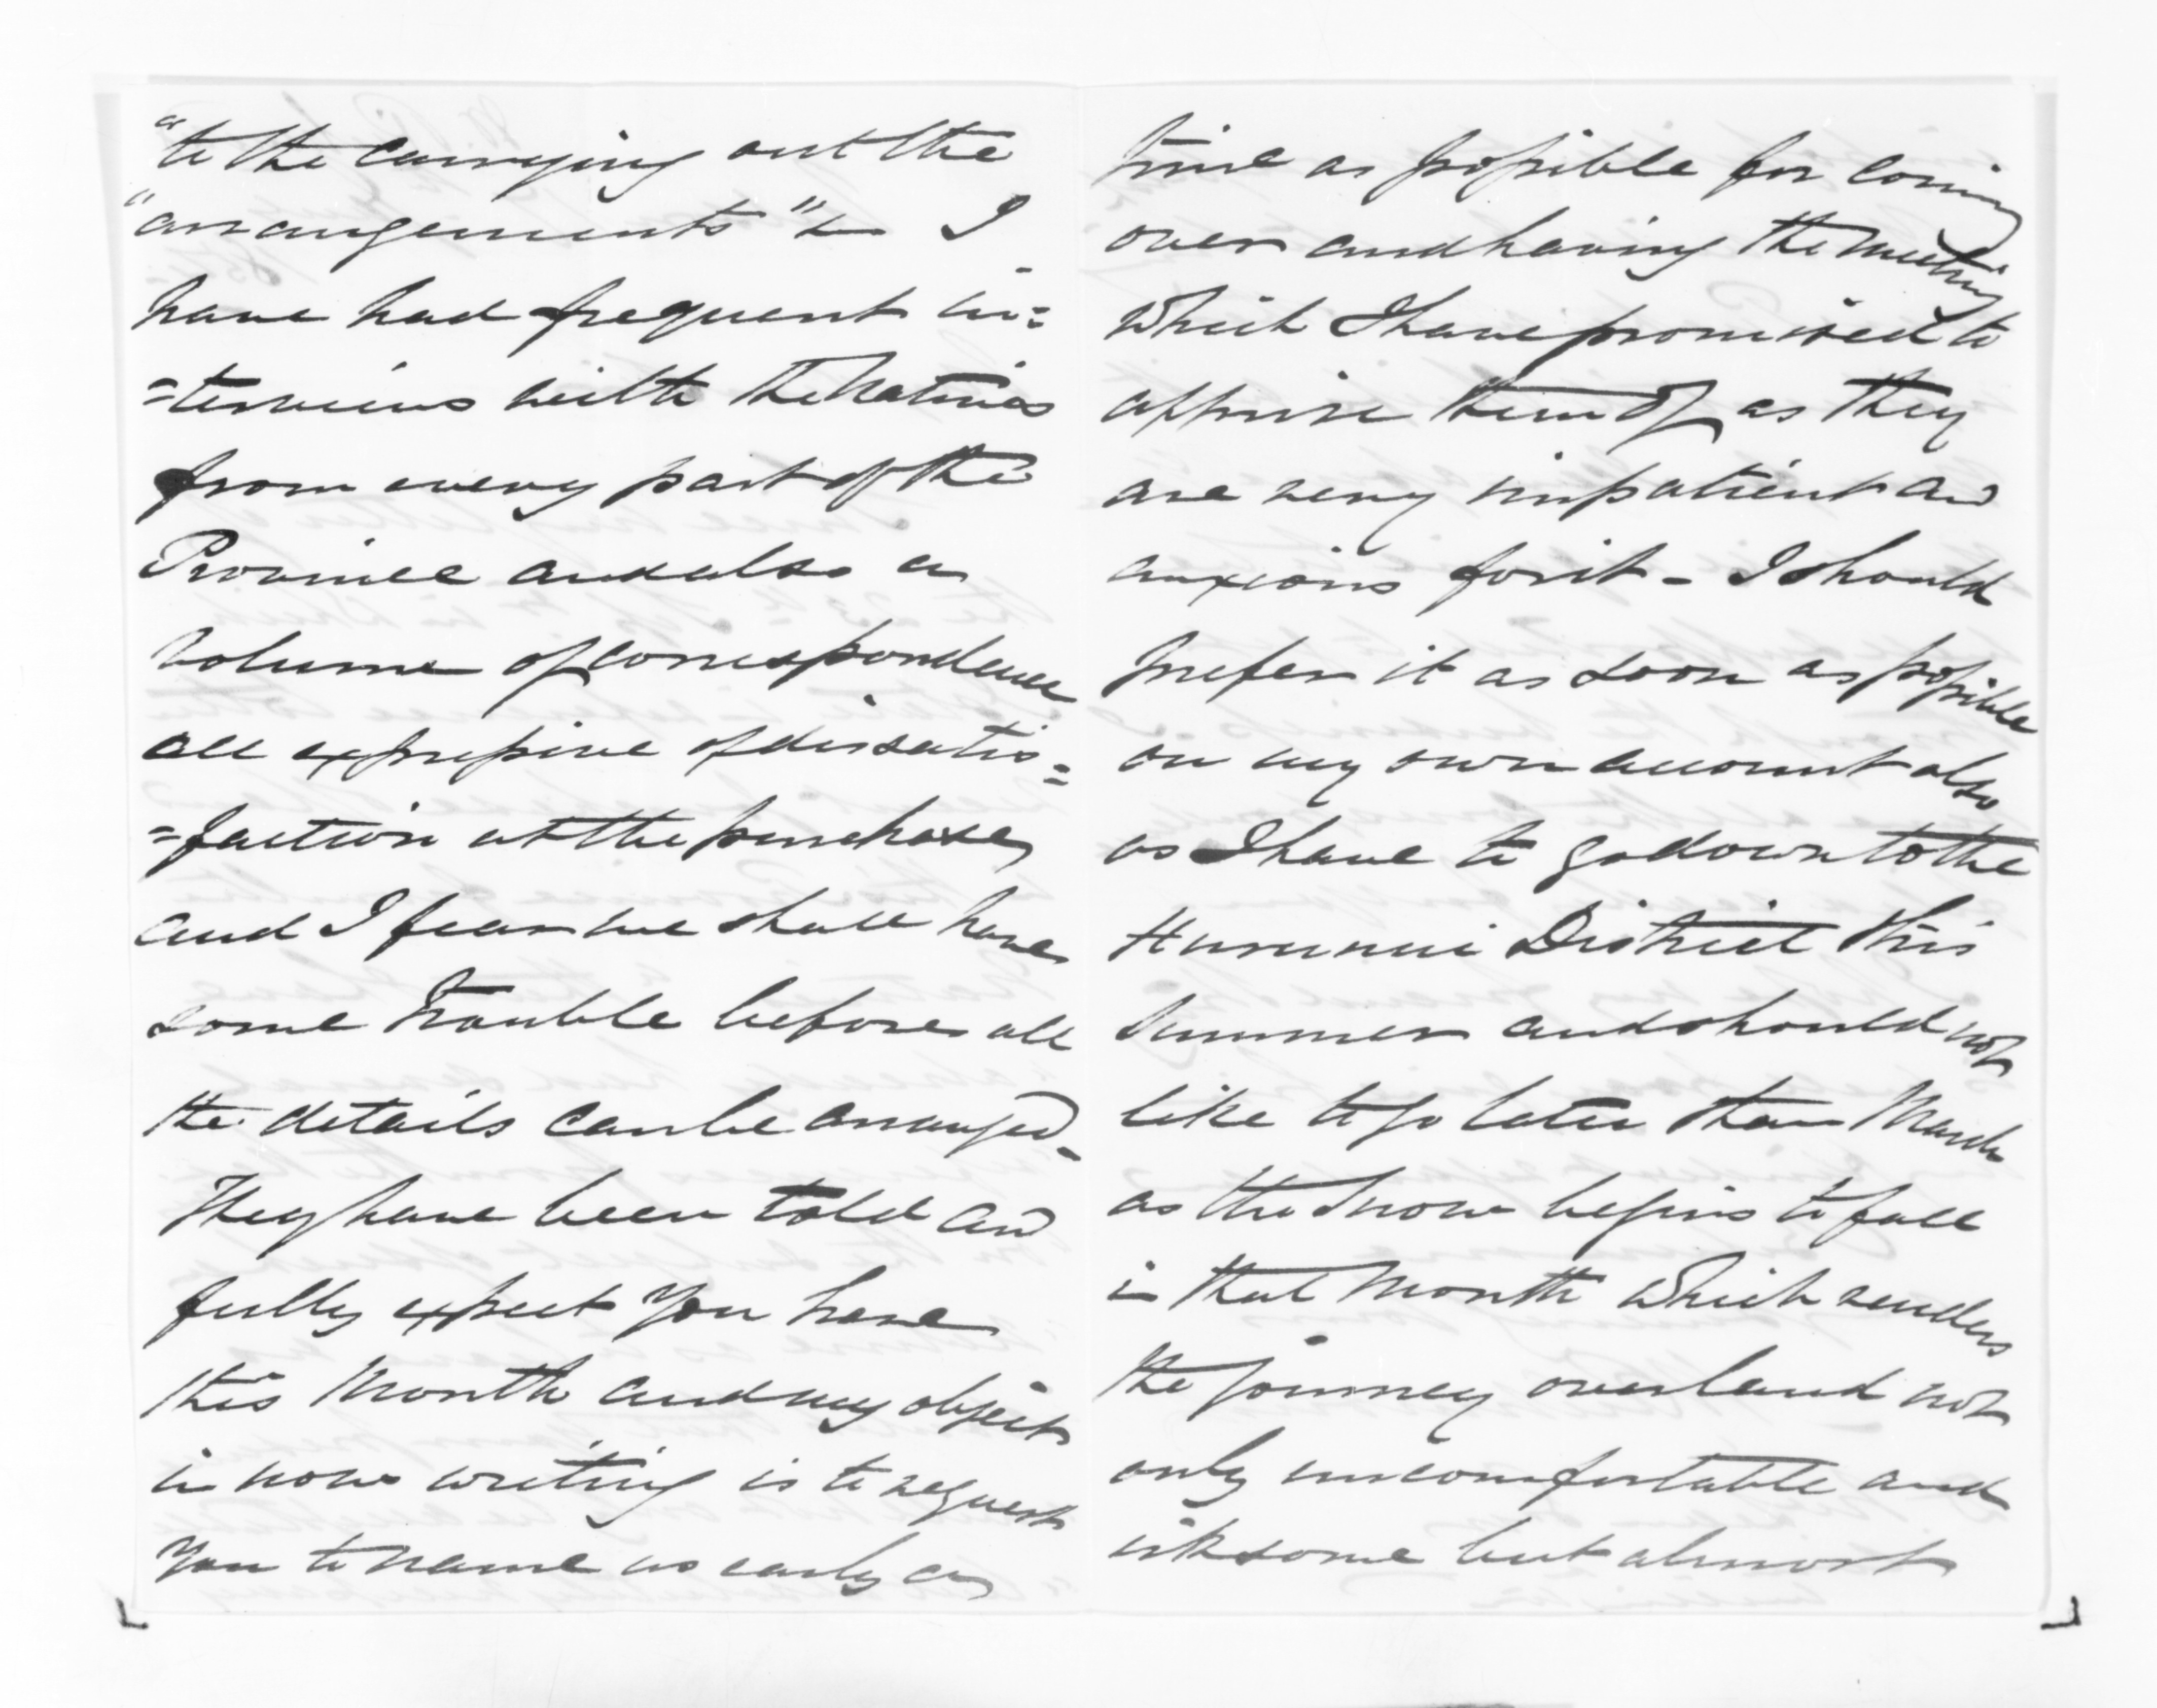 "to the carrying out the
"arrangements" &c I
have had frequent in=
=terviews with the Natives
from every part of the
Province and also a
volume of correspondence
all expressive of dissatis=
=faction at the purchase,
and I fear we shall have
some trouble before all
the details can be arranged -
They have been told and
fully expect you here
this Month and my object
in now writing is to request
you to name as early a
time as possible for coming
over and having the meeting
which I have promised to
apprise them of as they
are very impatient and
anxious for it - I should
prefer it as soon as possible
on my own account also
as I have to go down to the
Hurunui District this
Summer and should not
like to go later than March
as the Snow begins to fall
in that Month which renders
the journey overland not
only uncomfortable and
irksome but almost